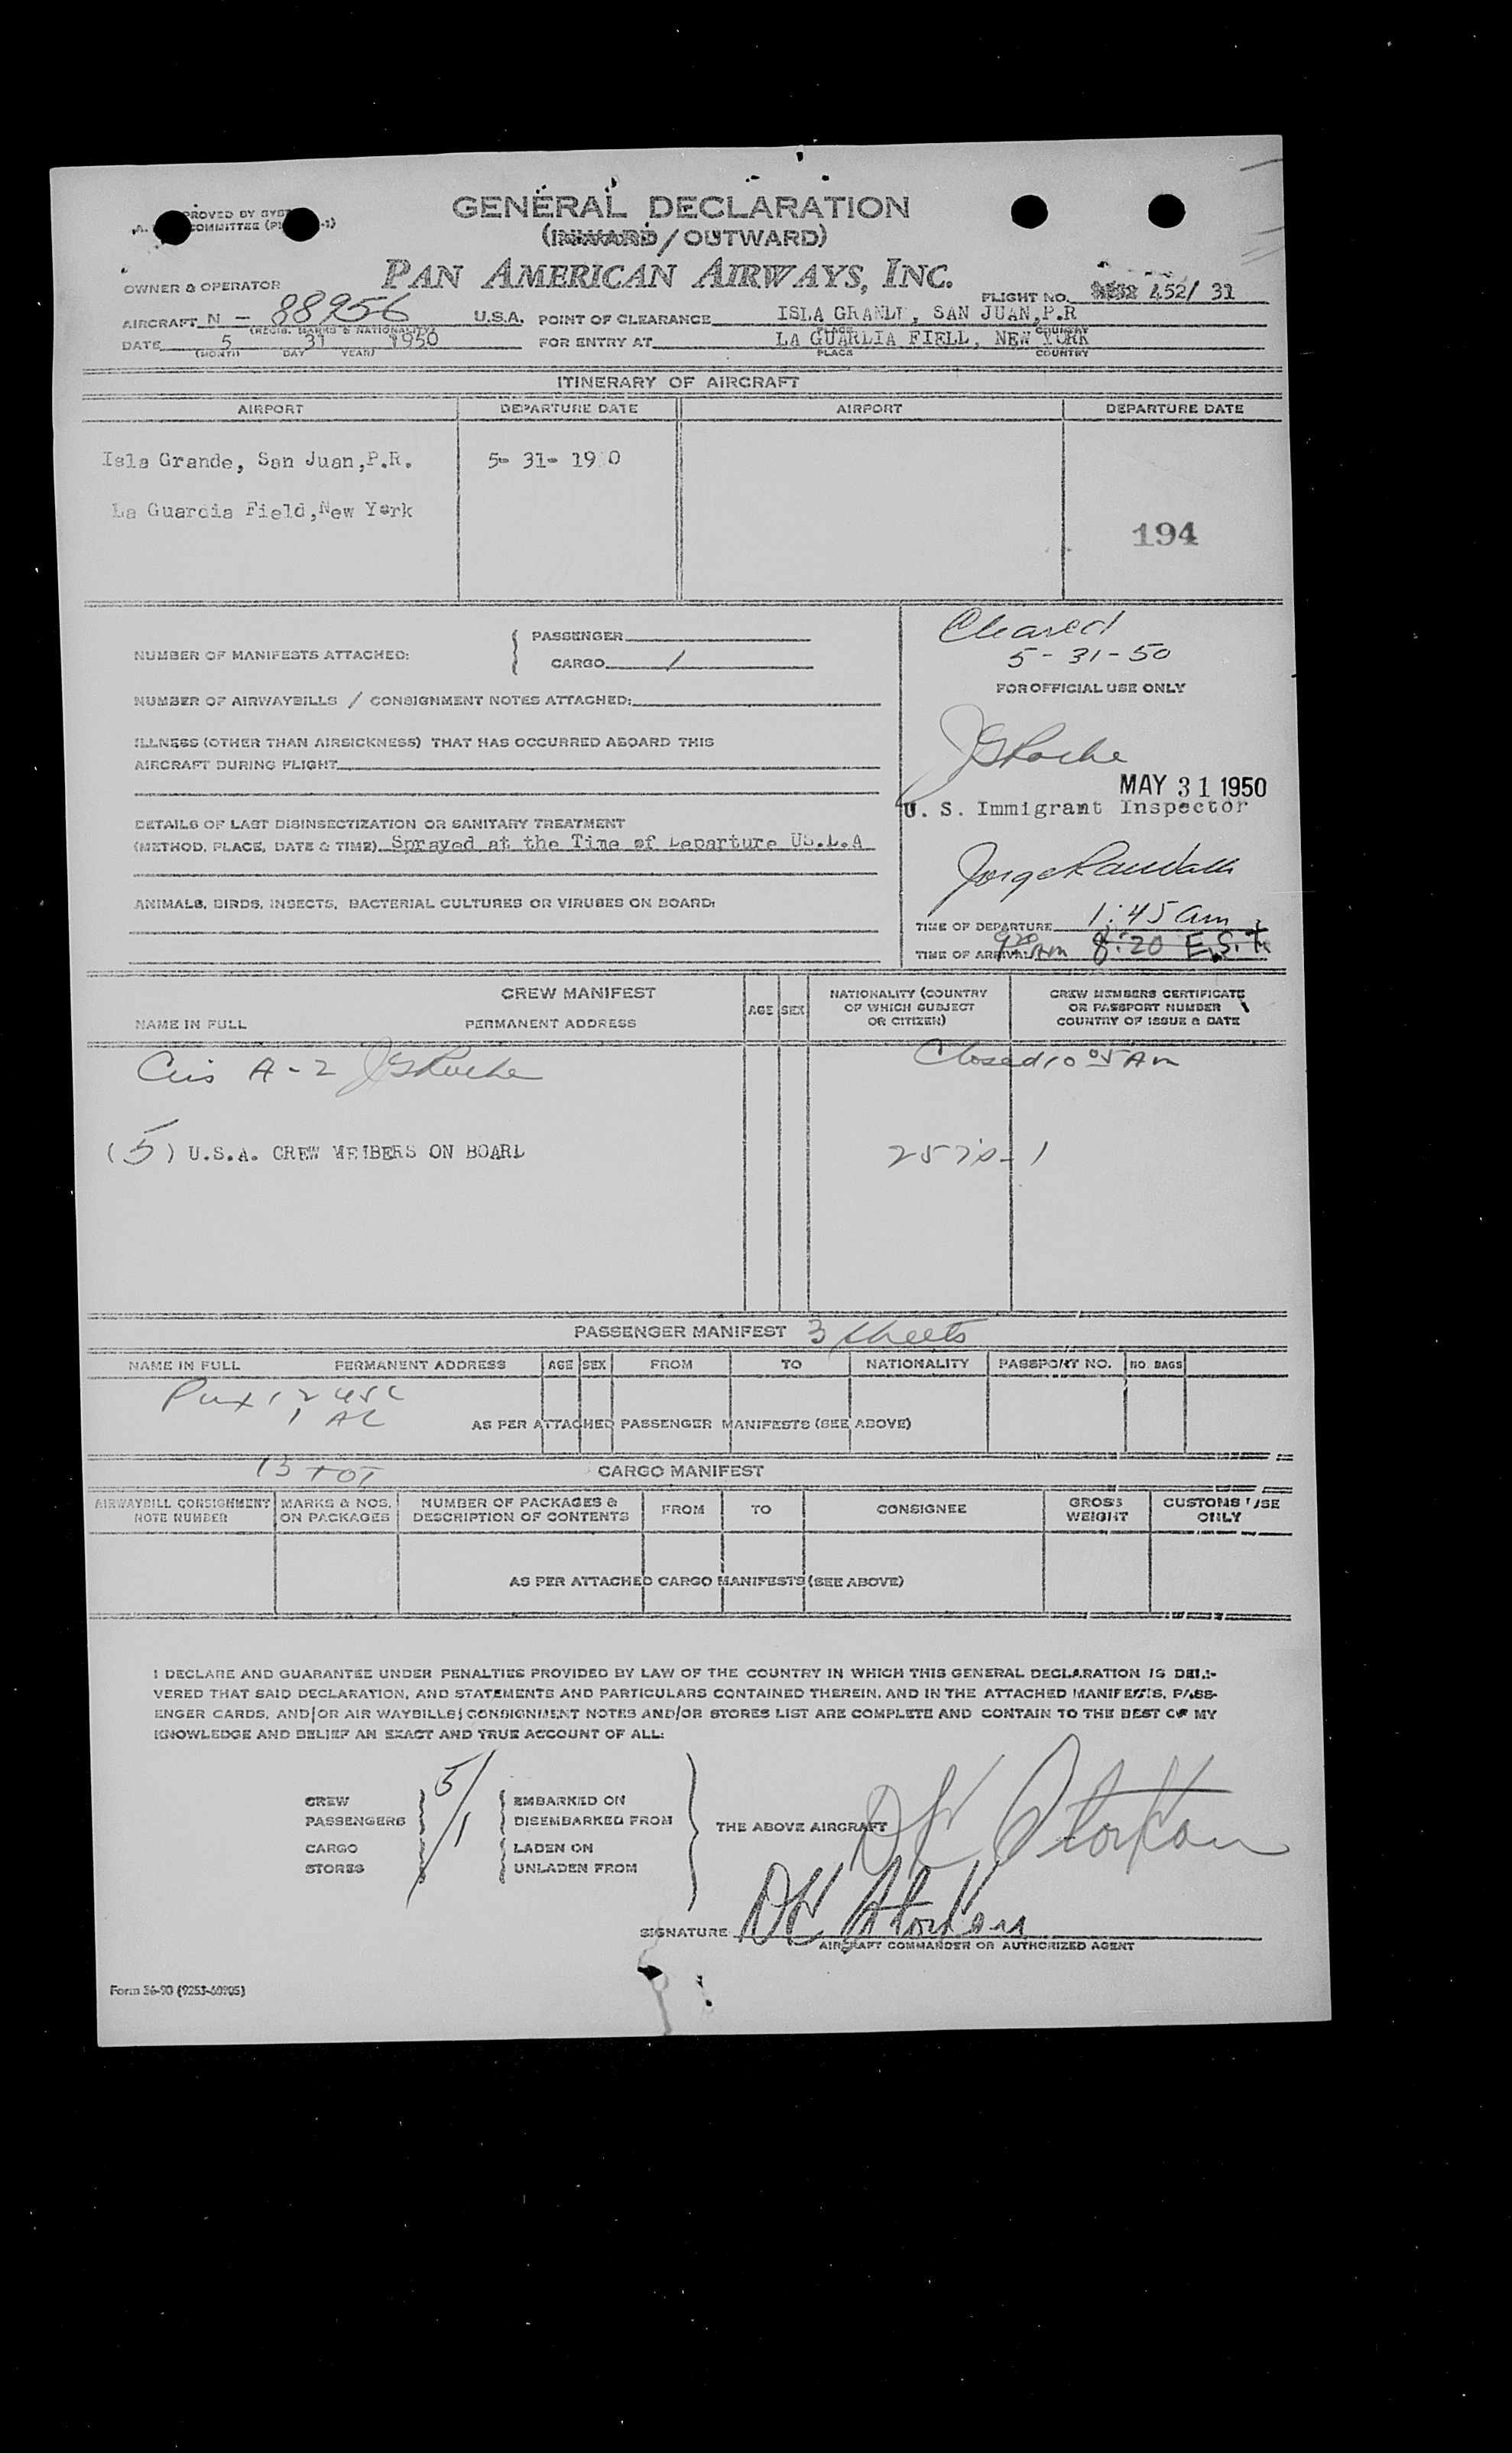 GENERAL DECLARATION
(INWARD / OUTWARD)
PROVED BY
COMMITTEE
PAN AMERICAN AIRWAYS, INC.
OWNER & OPERATOR
FLIGHT NO. 452/ 31
AIRCRAFT N - 88956 U.S.A.
(REGIS. MARKS & NATIONALITY)
POINT OF CLEARANCE ISLA GRANDE, SAN JUAN, P.R
PLACE COUNTRY
DATE 5 31 1950
(MONTH) DAY YEAR)
FOR ENTRY AT LA GUARLIA FIELL, NEW YORK
PLACE COUNTRY
ITINERARY OF AIRCRAFT
AIRPORT DEPARTURE DATE AIRPORT DEPARTURE DATE
Isla Grande, San Juan,P.R. 5- 31- 19 0
La Guardia Field,New York
194
Cleared
5-31-50
NUMBER OF MANIFESTS ATTACHED:
PASSENGER
CARGO 1
FOR OFFICIAL USE ONLY
NUMBER OF AIRWAYBILLS / CONSIGNMENT NOTES ATTACHED:
ILLNESS (OTHER THAN AIRSICKNESS) THAT HAS OCCURRED ABOARD THIS
AIRCRAFT DURING FLIGHT
JGRoche
MAY 31 1950
U. S. Immigrant Inspector
DETAILS OF LAST DISINSECTIZATION OR SANITARY TREATMENT
(METHOD, PLACE, DATE & TIME) Sprayed at the Time of Leparture US.L.A
ANIMALS, BIRDS, INSECTS, BACTERIAL CULTURES OR VIRUSES ON BOARD:
TIME OF DEPARTURE 1:45 am
TIME OF ARRIVAL 920 Am 8:20 E.S.T.
CREW MANIFEST
NAME IN FULL PERMANENT ADDRESS AGE SEX
NATIONALITY (COUNTRY
OF WHICH SUBJECT
OR CITIZEN)
CREW MEMBERS CERTIFICATE
OR PASSPORT NUMBER
COUNTRY OF ISSUE & DATE
A-2 JGRoche
Closed 10 05 Am
(5) U.S.A. CREW MEMBERS ON BOARL
PASSENGER MANIFEST 3 sheets
NAME IN FULL PERMANENT ADDRESS AGE SEX FROM TO NATIONALITY PASSPORT NO. NO. BAGS
1 AL
AS PER ATTACHED PASSENGER MANIFESTS (SEE ABOVE)
13 TOT
CARGO MANIFEST
AIRWAYBILL CONSIGNMENT
NOTE NUMBER
MARKS & NOS.
ON PACKAGES
NUMBER OF PACKAGES &
DESCRIPTION OF CONTENTS
FROM TO CONSIGNEE
GROSS
WEIGHT
CUSTOMS USE
ONLY
AS PER ATTACHED CARGO MANIFESTS (SEE ABOVE)
I DECLARE AND GUARANTEE UNDER PENALTIES PROVIDED BY LAW OF THE COUNTRY IN WHICH THIS GENERAL DECLARATION IS DELI-
VERED THAT SAID DECLARATION, AND STATEMENTS AND PARTICULARS CONTAINED THEREIN, AND IN THE ATTACHED MANIFESTS, PASS-
ENGER CARDS, AND/OR AIR WAYBILLS/CONSIGNMENT NOTES AND/OR STORES LIST ARE COMPLETE AND CONTAIN TO THE BEST OF MY
KNOWLEDGE AND BELIEF AN EXACT AND TRUE ACCOUNT OF ALL:
CREW 5
PASSENGERS
CARGO 1
STORES
EMBARKED ON
DISEMBARKED FROM
LADEN ON
UNLADEN FROM
THE ABOVE AIRCRAFT
SIGNATURE
AIRCRAFT COMMANDER OR AUTHORIZED AGENT